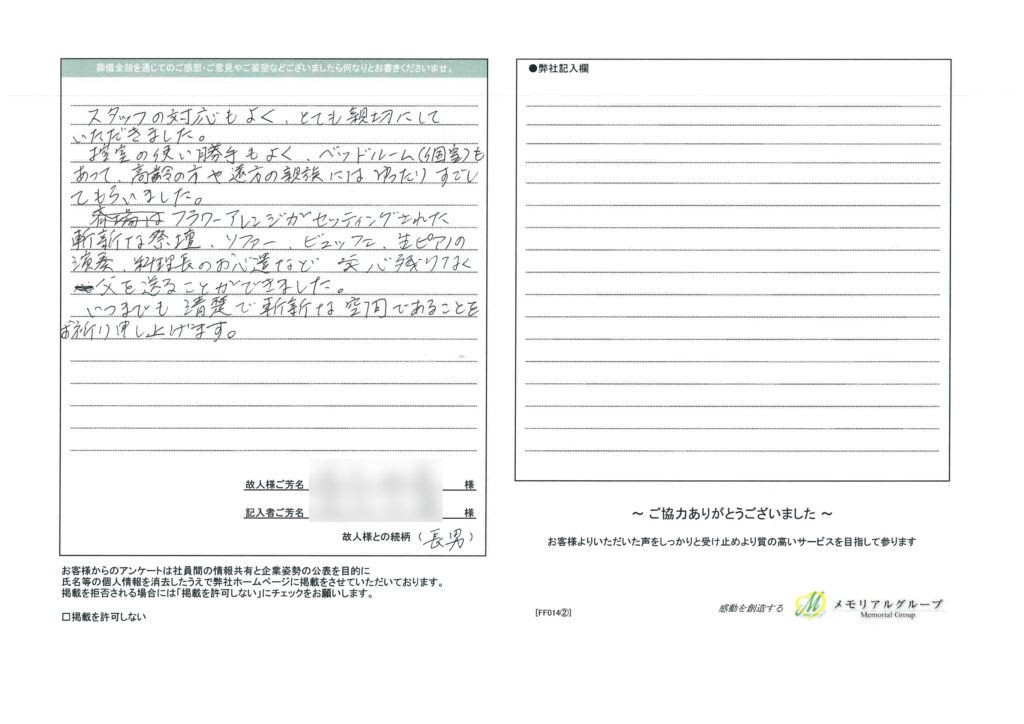 葬儀全般を通じてのご感想・ご意見やご要望などございましたら何なりとお書きくださいませ。
スタッフの対応もよく、とても親切にして
いただきました。
控室の使い勝手もよく、ベッドルーム(個室)も
あって、高齢の方や遠方の親族にはゆったりすごし
てもらいました。
斎場は フラワーアレンジがセッティングされた
斬新な祭壇、ソファー、ビュッフェ、生ピアノの
演奏、料理長のお心遣など 心残りなく
父を送ることができました。
いつまでも清楚で斬新な空間であることを
お祈り申し上げます。
故人様ご芳名 様
記入者ご芳名 様
故人様との続柄 (長男)
お客様からのアンケートは社員間の情報共有と企業姿勢の公表を目的に
氏名等の個人情報を消去したうえで弊社ホームページに掲載をさせていただいております。
掲載を拒否される場合には「掲載を許可しない」にチェックをお願いします。
□掲載を許可しない
●弊社記入欄
～ ご協力ありがとうございました ～
お客様よりいただいた声をしっかりと受け止めより質の高いサービスを目指して参ります
[FF014②]
感動を創造する
M
メモリアルグループ
Memorial Group